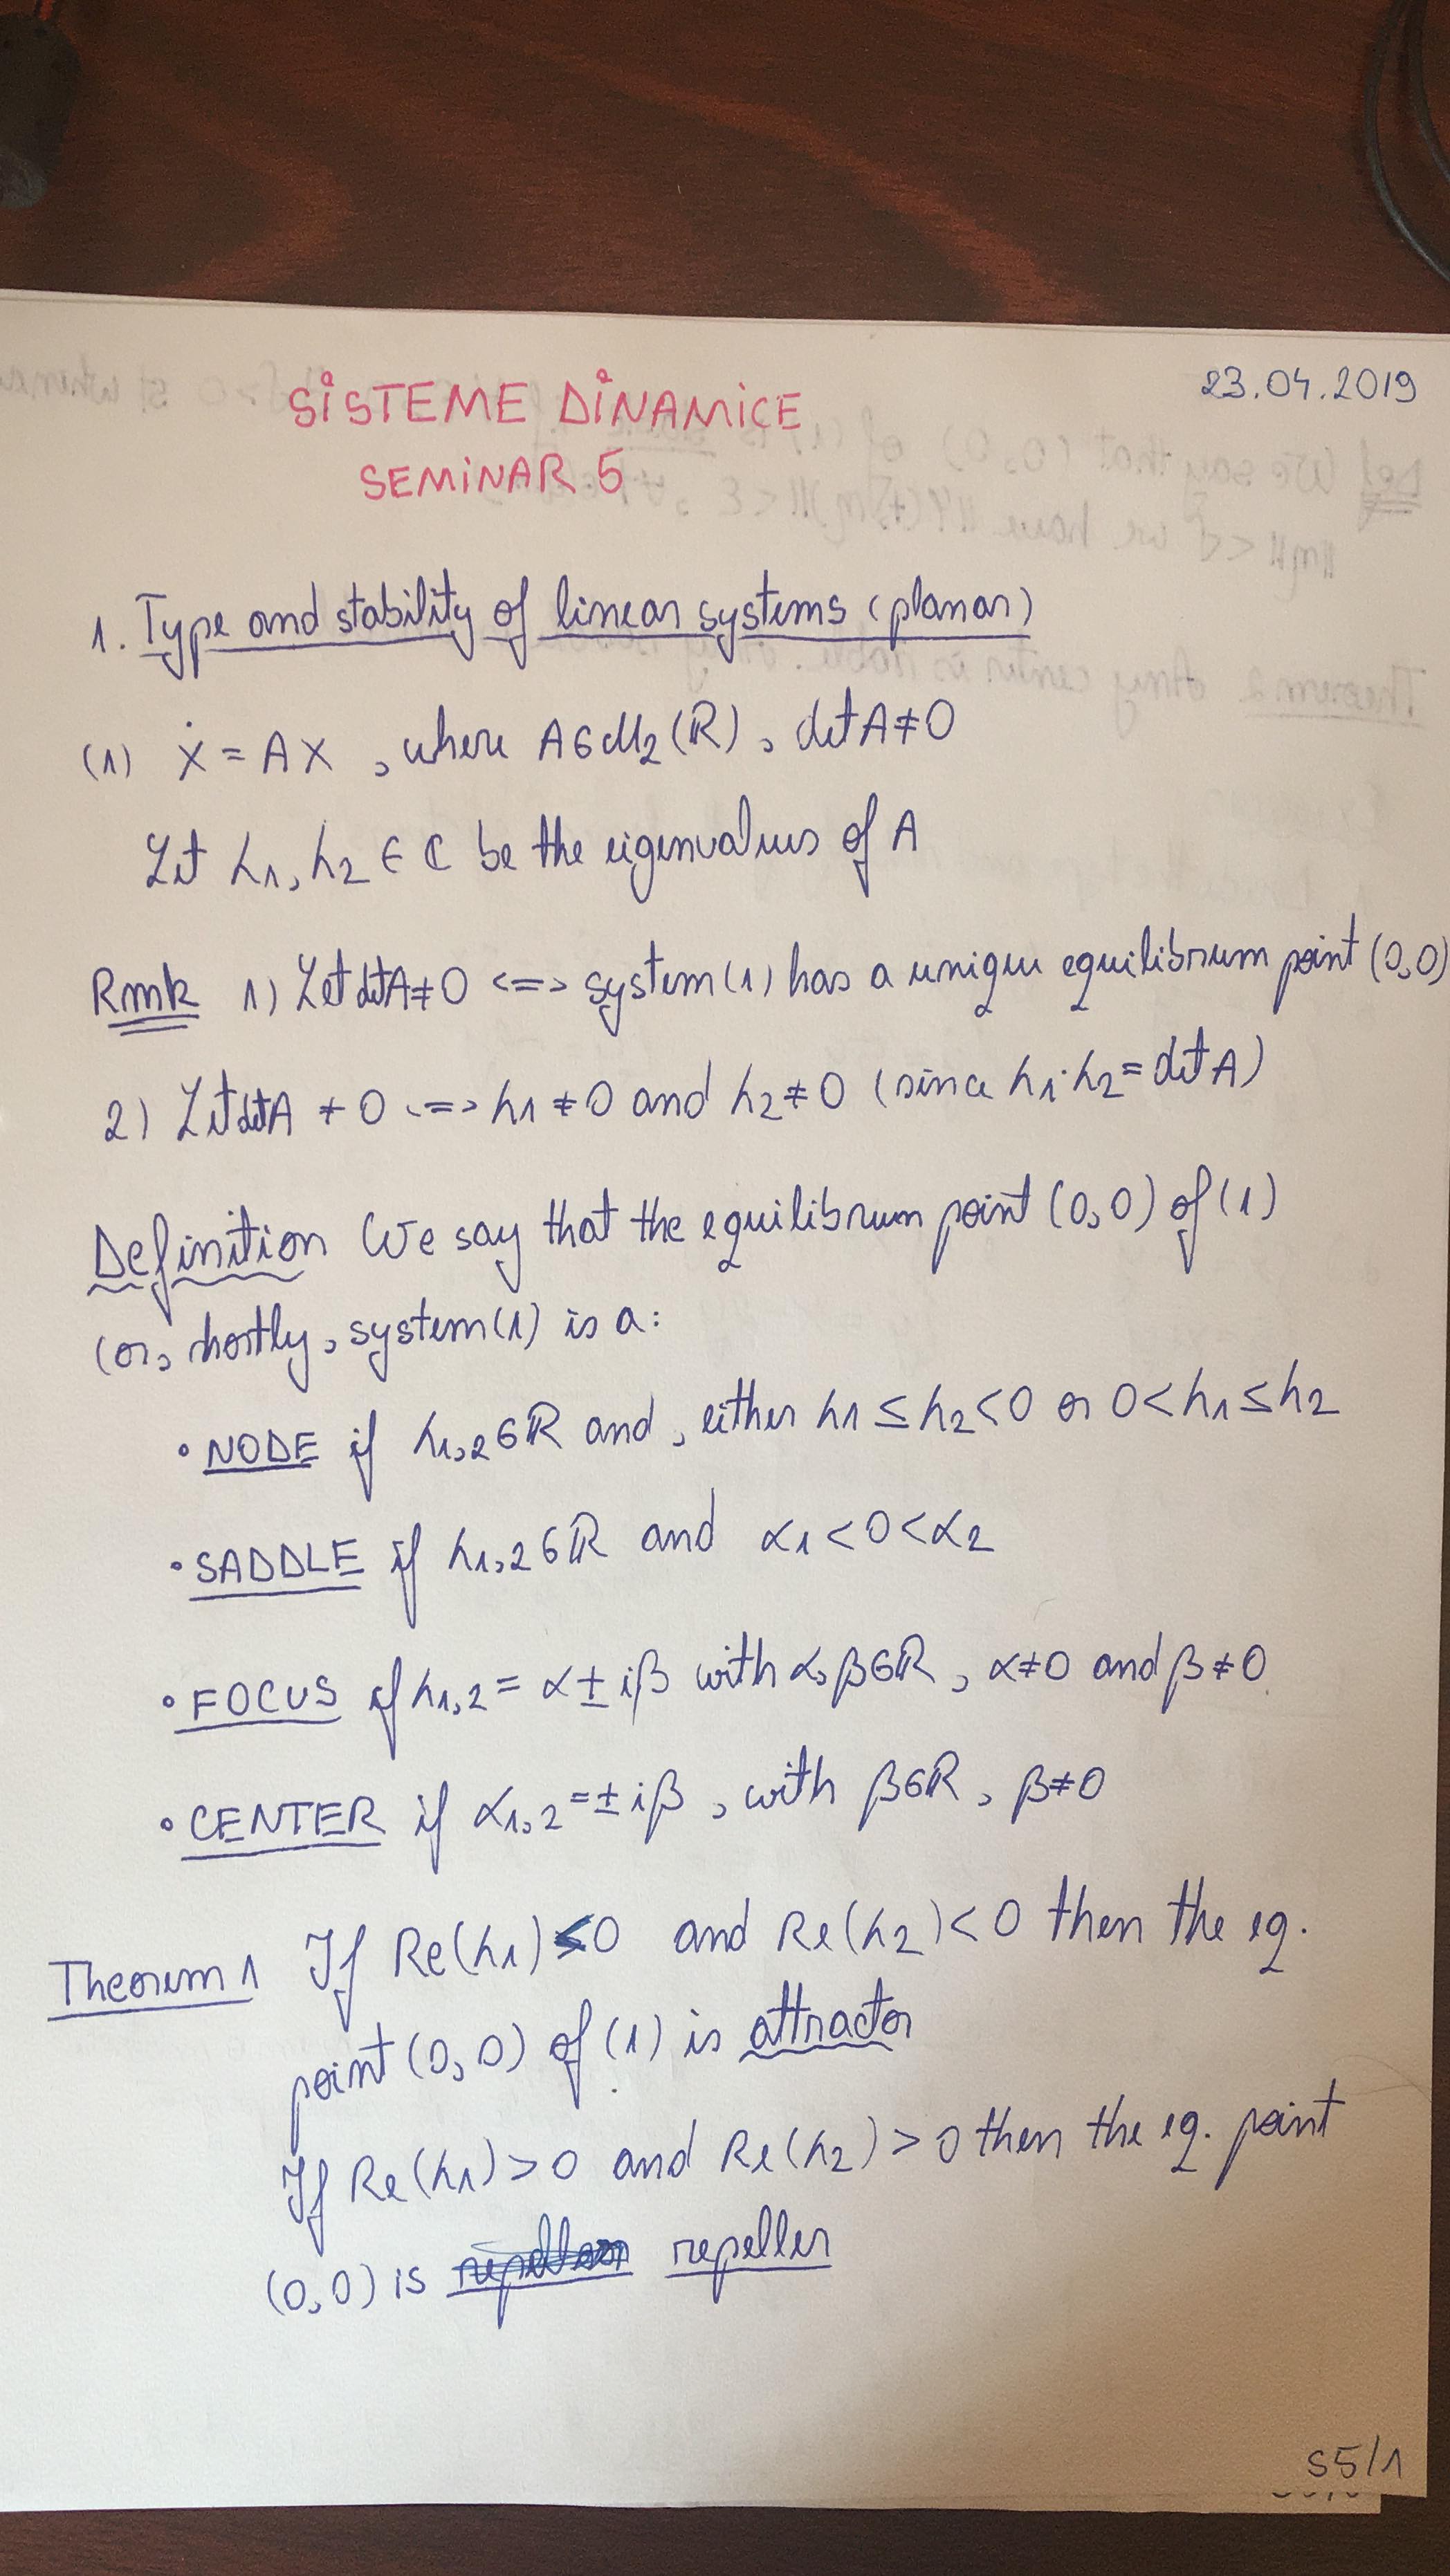 23.04.2019
SISTEME DINAMICE
SEMINAR 5
1. Type and stability of linear systems (planar)
(1) Ẋ = AX, where A∈M₂(ℝ), det A≠0
Let λ₁, λ₂ ∈ ℂ be the eigenvalues of A
Rmk 1) Let det A≠0 <=> system (1) has a unique equilibrium point (0,0)
2) Let det A ≠ 0 <=> λ₁ ≠ 0 and λ₂ ≠ 0 (since λ₁·λ₂ = det A)
Definition We say that the equilibrium point (0,0) of (1)
(or, shortly, system (1) is a:
• NODE if λ₁,₂∈ℝ and, either λ₁ ≤ λ₂<0 or 0<λ₁≤λ₂
• SADDLE if λ₁,₂∈ℝ and α₁<0<α₂
• FOCUS if λ₁,₂ = α±iβ with α,β∈ℝ, α≠0 and β≠0
• CENTER if α₁,₂=±iβ, with β∈ℝ, β≠0
Theorem 1 If Re(λ₁)<0 and Re(λ₂)<0 then the eq.
point (0,0) of (1) is attractor
If Re(λ₁)>0 and Re(λ₂)>0 then the eq. point
(0,0) is repeller
S5/1